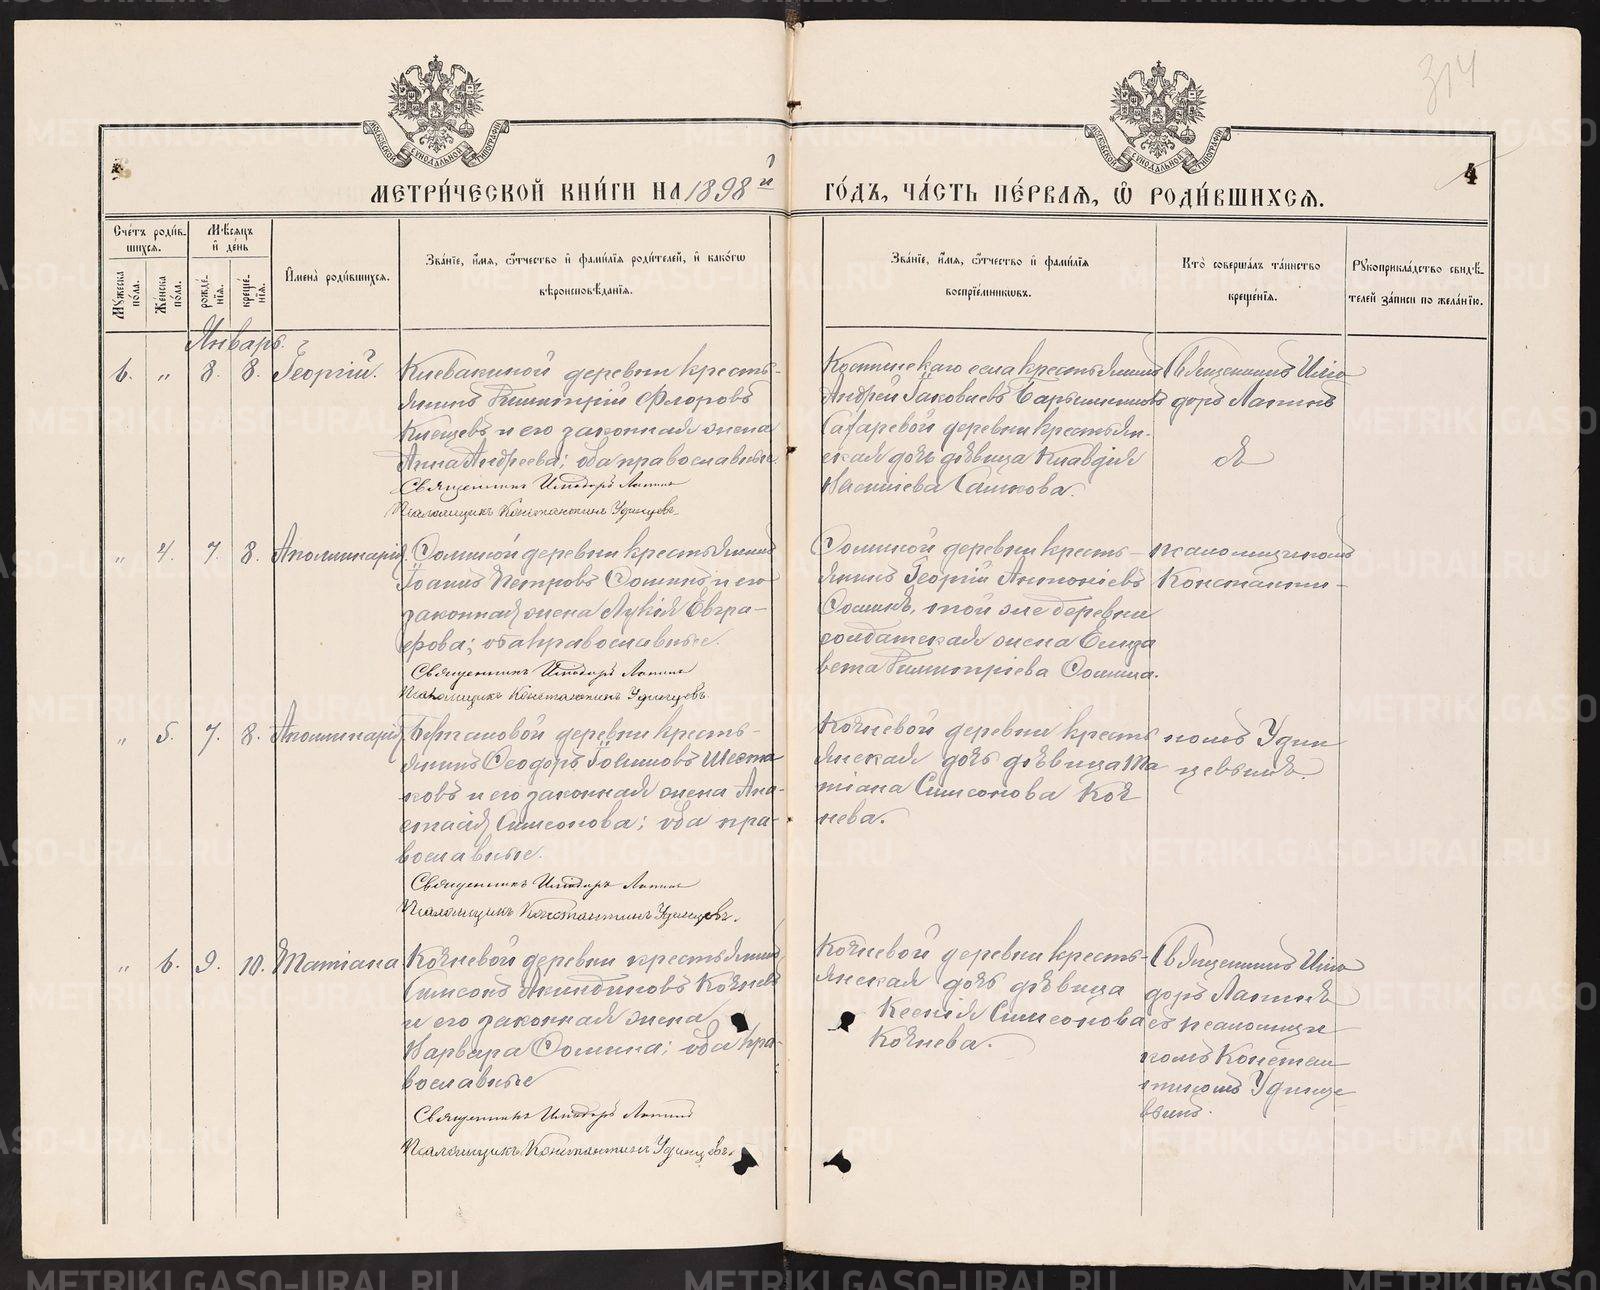 314
МОСКОВСКОЙ СѴНОДАЛЬНОЙ ТИПОГРАФІИ
МОСКОВСКОЙ СѴНОДАЛЬНОЙ ТИПОГРАФІИ
4
МЕТРИ́ЧЕСКОЙ КНИ́ГИ НА 1898 й ГО́ДЪ, ЧА́СТЬ ПЕ́РВАѦ, Ѡ҆ РОДИ́ВШИХСѦ.
Сче́тъ роди́вшихсѧ.
Мѣ́сѧцъ и҆ де́нь
Мꙋ́жеска по́ла.
Же́нска по́ла.
рожде́нїѧ.
креще́нїѧ.
И҆мена̀ роди́вшихсѧ.
Зва́нїе, и҆́мѧ, ѻ҆́тчество и҆ фами́лїѧ роди́телей, и҆ како́гѡ
вѣроисповѣ́данїѧ.
Зва́нїе, и҆́мѧ, ѻ҆́тчество и҆ фами́лїѧ
воспрїе́мникѡвъ.
Кто̀ соверша́лъ та́инство
креще́нїѧ.
Рꙋкоприкла́дство свидѣ́телей за́писи по жела́нїю.
Январь.
6. „ 8. 8. Георгій.
Клевакиной деревни кресть-
янинъ Димитрій Флоровъ
Клещевъ и его законная жена
Анна Андреева; оба православные.
Священникъ Исидоръ Лапинъ
Псаломщикъ Константинъ Удинцевъ.
Костинскаго села крестьянинъ
Андрей Іаковлевъ Барышниковъ
деревни крестьян-
ская дочь дѣвица Клавдія
Священникъ Иси-
доръ Лапинъ
„ 4. 7. 8. Аполлинарія
Соминой деревни крестьянинъ
Іоаннъ Петровъ Соминъ и его
законная жена Лукія Евгра-
фова; оба православные.
Священникъ Исидоръ Лапинъ
Псаломщикъ Константинъ Удинцевъ
Соминой деревни кресть-
янинъ Георгій Антоніевъ
Соминъ, той же деревни
солдатская жена Елиза
вета Димитріева Сомина.
псаломщикомъ
Константи-
„ 5. 7. 8. Аполлинарія
деревни кресть-
янинъ Ѳеодоръ Шеста
ковъ и его законная жена Ана-
стасія Симеонова; оба пра-
вославные.
Священникъ Исидоръ Лапинъ
Псаломщикъ Константинъ Удинцевъ.
Кочневой деревни кресть
янская дочь дѣвица Та
тіана Симеонова Коч
нева.
номъ Удин
цевымъ.
„ 6. 9. 10. Татіана
Кочневой деревни крестьянинъ
Симеонъ Акиндиновъ Кочневъ
и его законная жена
Варвара Сомина; оба пра-
вославные
Священникъ Исидоръ Лапинъ
Псаломщикъ Константинъ Удинцевъ.
Кочневой деревни кресть-
янская дочь дѣвица
Ксенія Симеонова
Кочнева.
Священникъ Иси
доръ Лапинъ
съ псаломщи
комъ Констан
тиномъ Удинце
вымъ.
METRIKI.GASO-URAL.RU